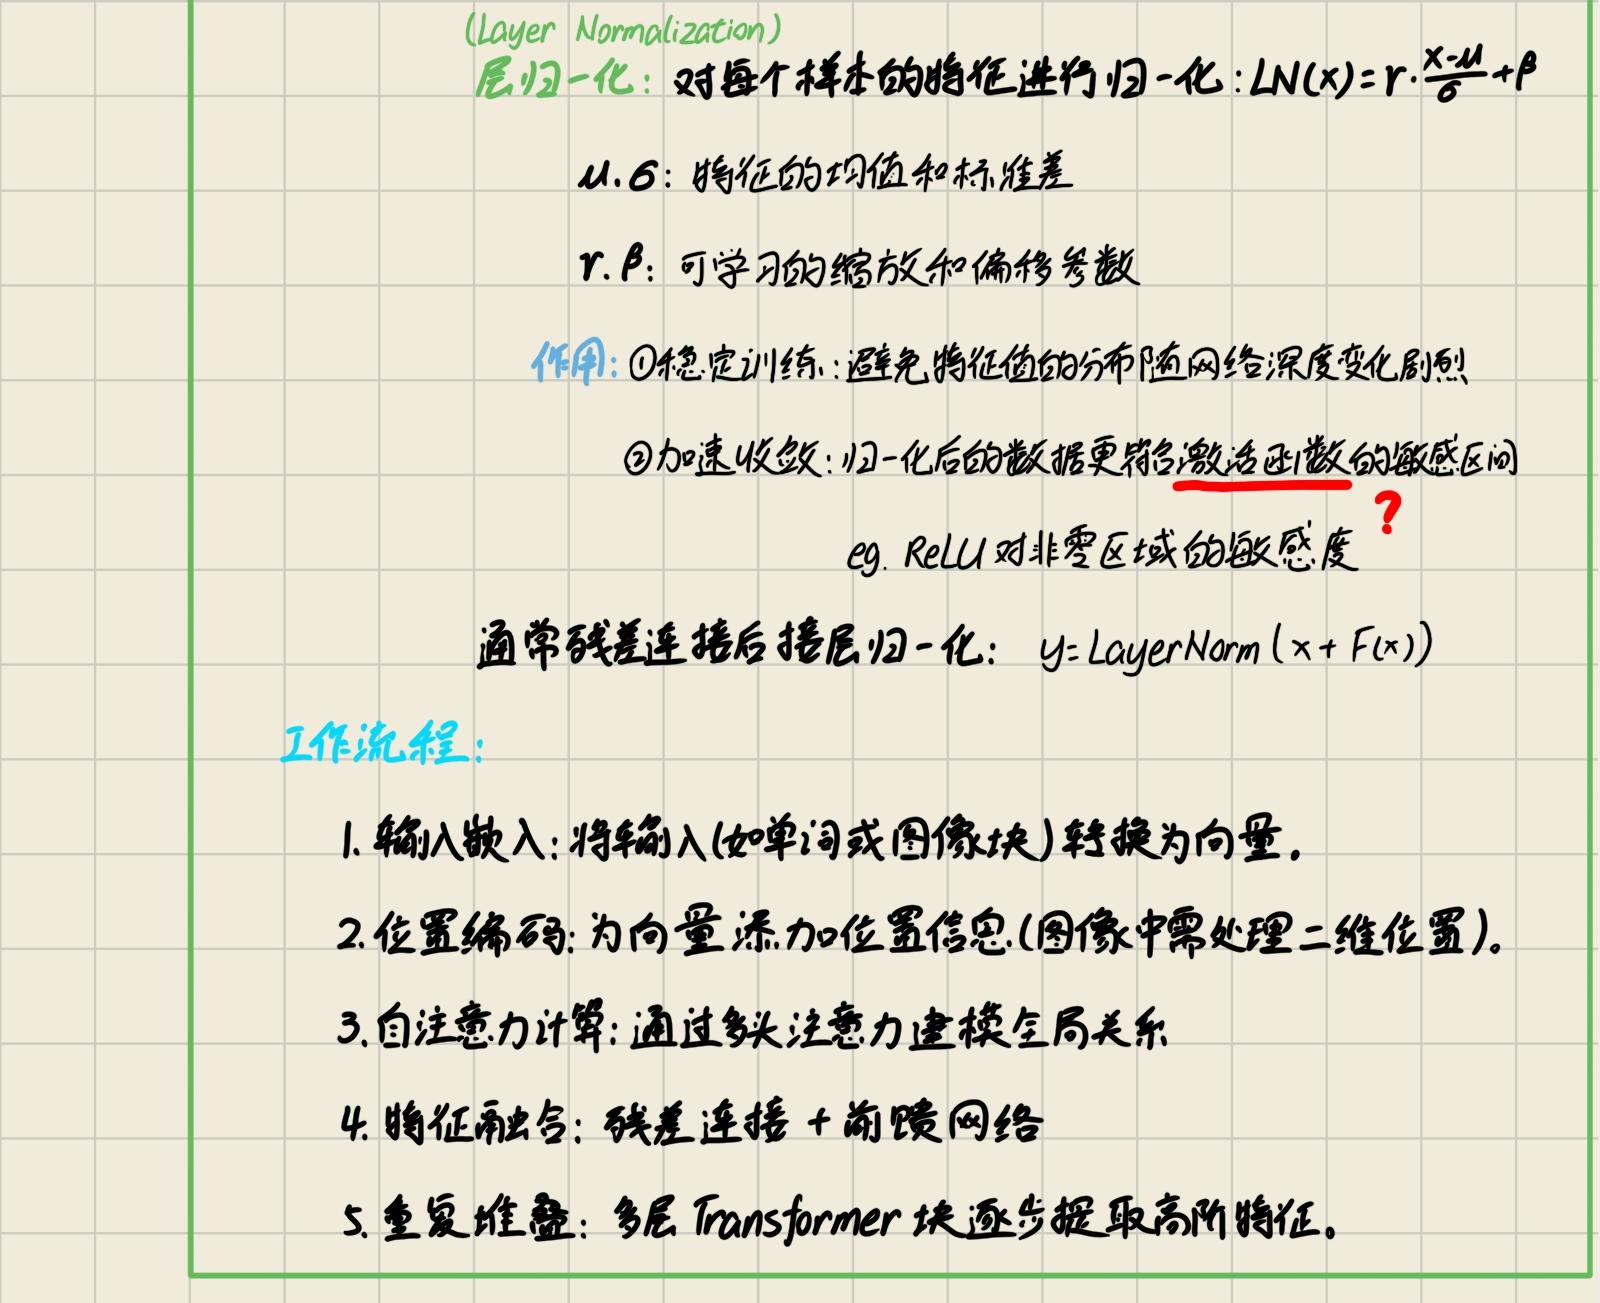 (Layer Normalization)
层归一化: 对每个样本的特征进行归一化: LN(x)=r·\frac{x-μ}{σ}+β
μ.σ: 特征的均值和标准差
r.β: 可学习的缩放和偏移参数
作用: ①稳定训练: 避免特征值的分布随网络深度变化剧烈
②加速收敛: 归一化后的数据更符合激活函数的敏感区间
?
eg. ReLU对非零区域的敏感度
通常残差连接后接层归一化: y=LayerNorm(x+F(x))
工作流程:
1. 输入嵌入: 将输入(如单词或图像块)转换为向量.
2. 位置编码: 为向量添加位置信息(图像中需处理二维位置)。
3. 自注意力计算: 通过多头注意力建模全局关系
4. 特征融合: 残差连接+前馈网络
5. 重复堆叠: 多层Transformer块逐步提取高阶特征。